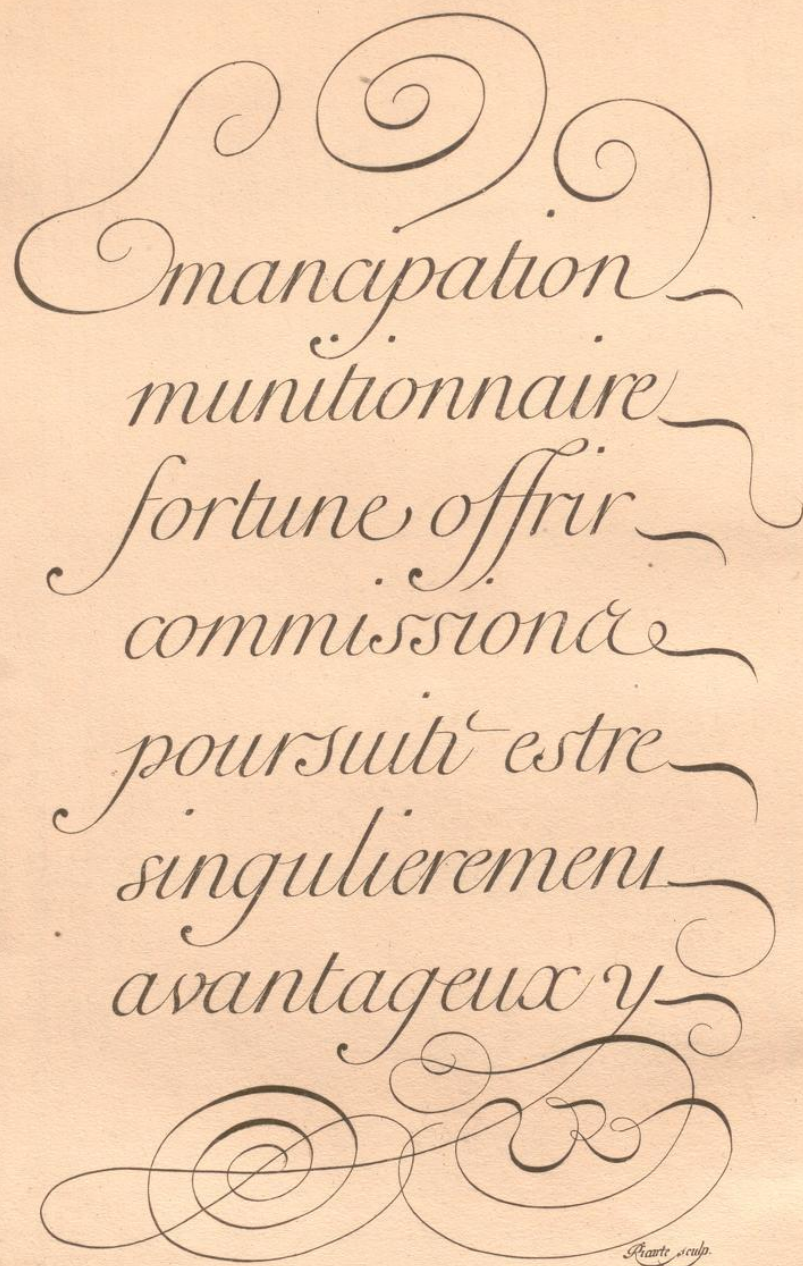 Emancipation
munitionnaire
fortune offrir
commissiona
poursuiti estre
singulierement
avantageux y
Ricarte sculp.